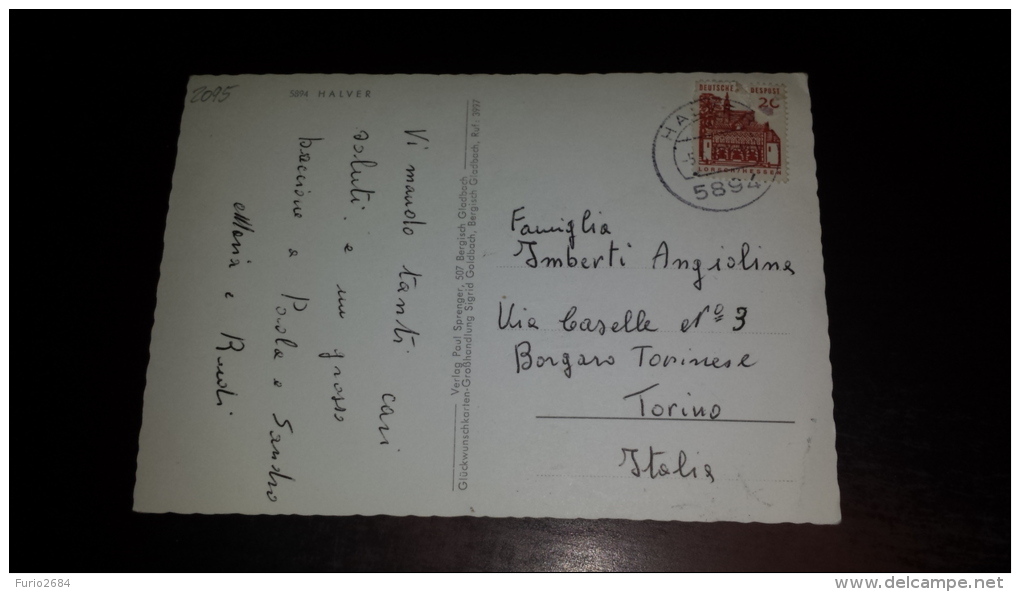 2095
5894 HALVER
Vi mando tanti cari
saluti. e un grosso
baccione a Paola e Sandro
Maria e Rudi
Verlag Paul Sprenger, 507 Bergisch Gladbach
Glückwunschkarten-Großhandlung Sigrid Goldbach, Bergisch Gladbach, Ruf: 3997
DEUTSCHE BESPOST
20
LORSCH/HESSEN
5894
Famiglia
Imberti Angiolina
Via Caselle Nº 3
Borgaro Torinese
Torino
Italia
Furio2684
delcampe.net